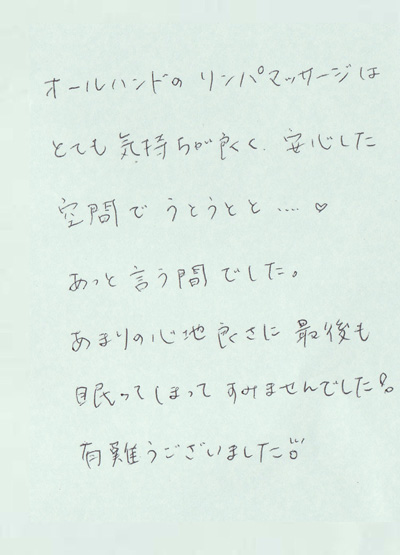 オールハンドの リンパマッサージは
とても 気持ちが良く、安心した
空間で うとうとと …. ♡
あっと言う間でした。
あまりの心地良さに 最後も
眠ってしまって すみませんでした!。
有難うございました!!